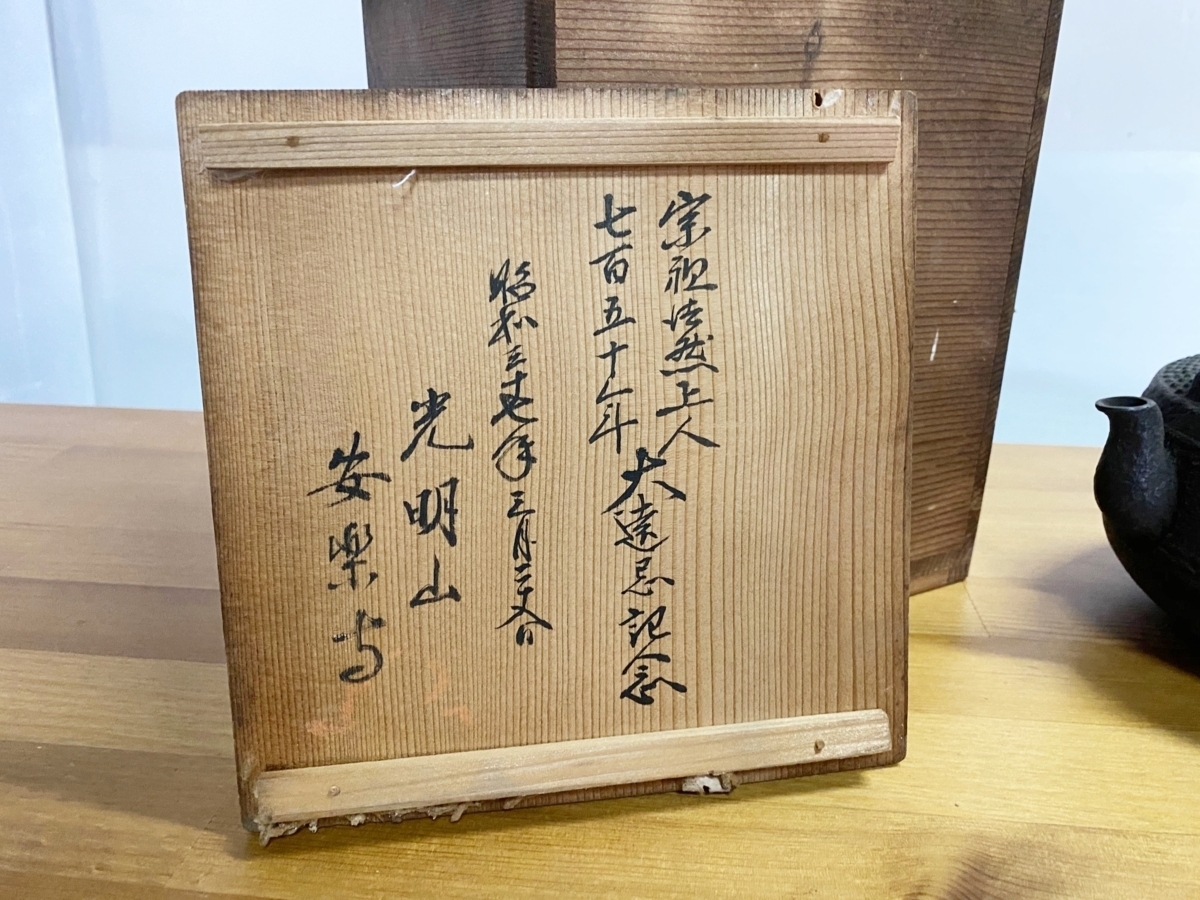 宗祖法然上人
七百五十ケ年大遠忌記念
昭和三十七年三月二十八日
光明山
安楽寺